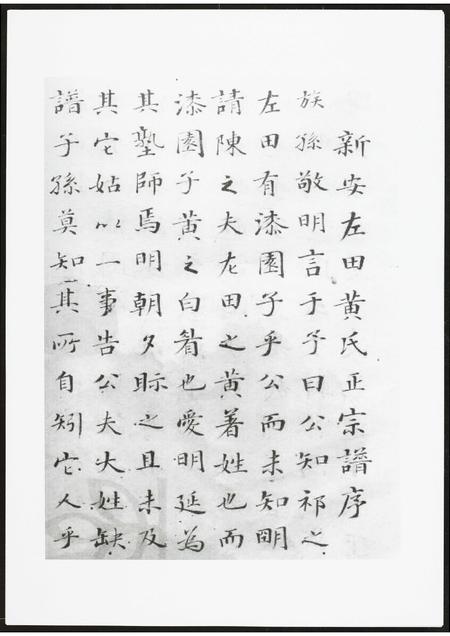 新安左田黃氏正宗譜序
族孫敬明言于予曰公知祁之
左田有漆園子乎公而未知明
請陳之夫左田之黃著姓也而
漆園子黃之白眉也愛明延為
其塾師焉明朝夕眎之且未及
其它姑以一事告公夫大姓缺
譜子孫莫知其所自矧它人乎